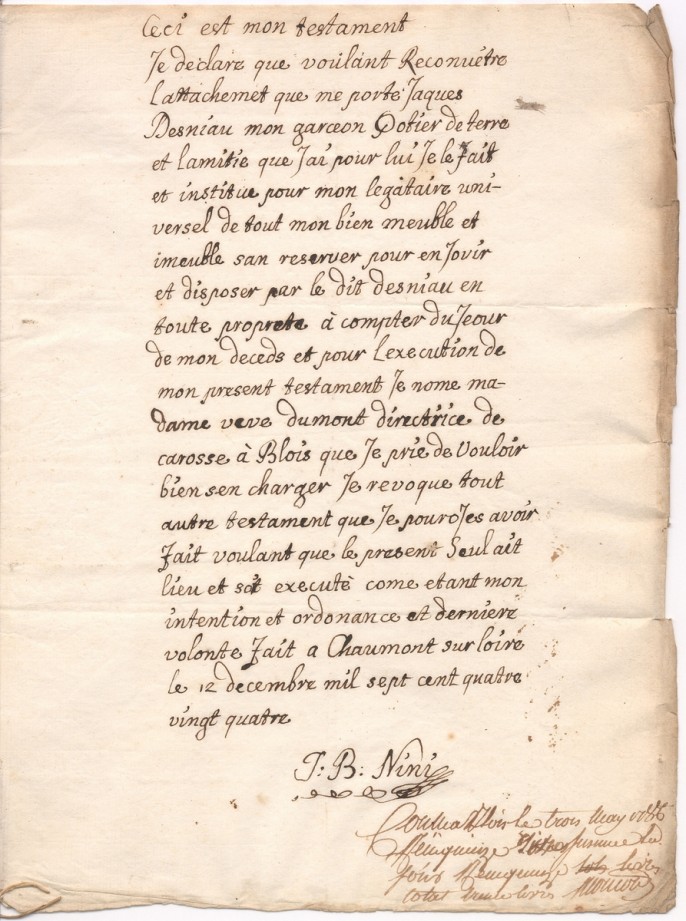 Ceci est mon testament
Je declare que voulant Reconuétre
Lattachemet que me porte Jaques
Desniau mon garceon Potier de terre
et lamitie que J'ai pour lui Je le fait
et institue pour mon legataire uni-
versel de tout mon bien meuble et
imeuble san reserver pour en Jovir
et disposer par le dit desniau en
toute proprete à compter du Jeour
de mon deceds et pour Lexecution de
mon present testament Je nome ma-
dame veve dumont directrice de
carosse à Blois que Je prie de Vouloir
bien sen charger Je revoque tout
autre testament que Je pouroJes avoir
fait voulant que le present Seul ait
lieu et soit executè come etant mon
intention et ordonance et derniere
volonte fait a Chaumont sur loire
le 12 decembre mil sept cent quatre
vingt quatre
J: B: Nini
le trois may 1786